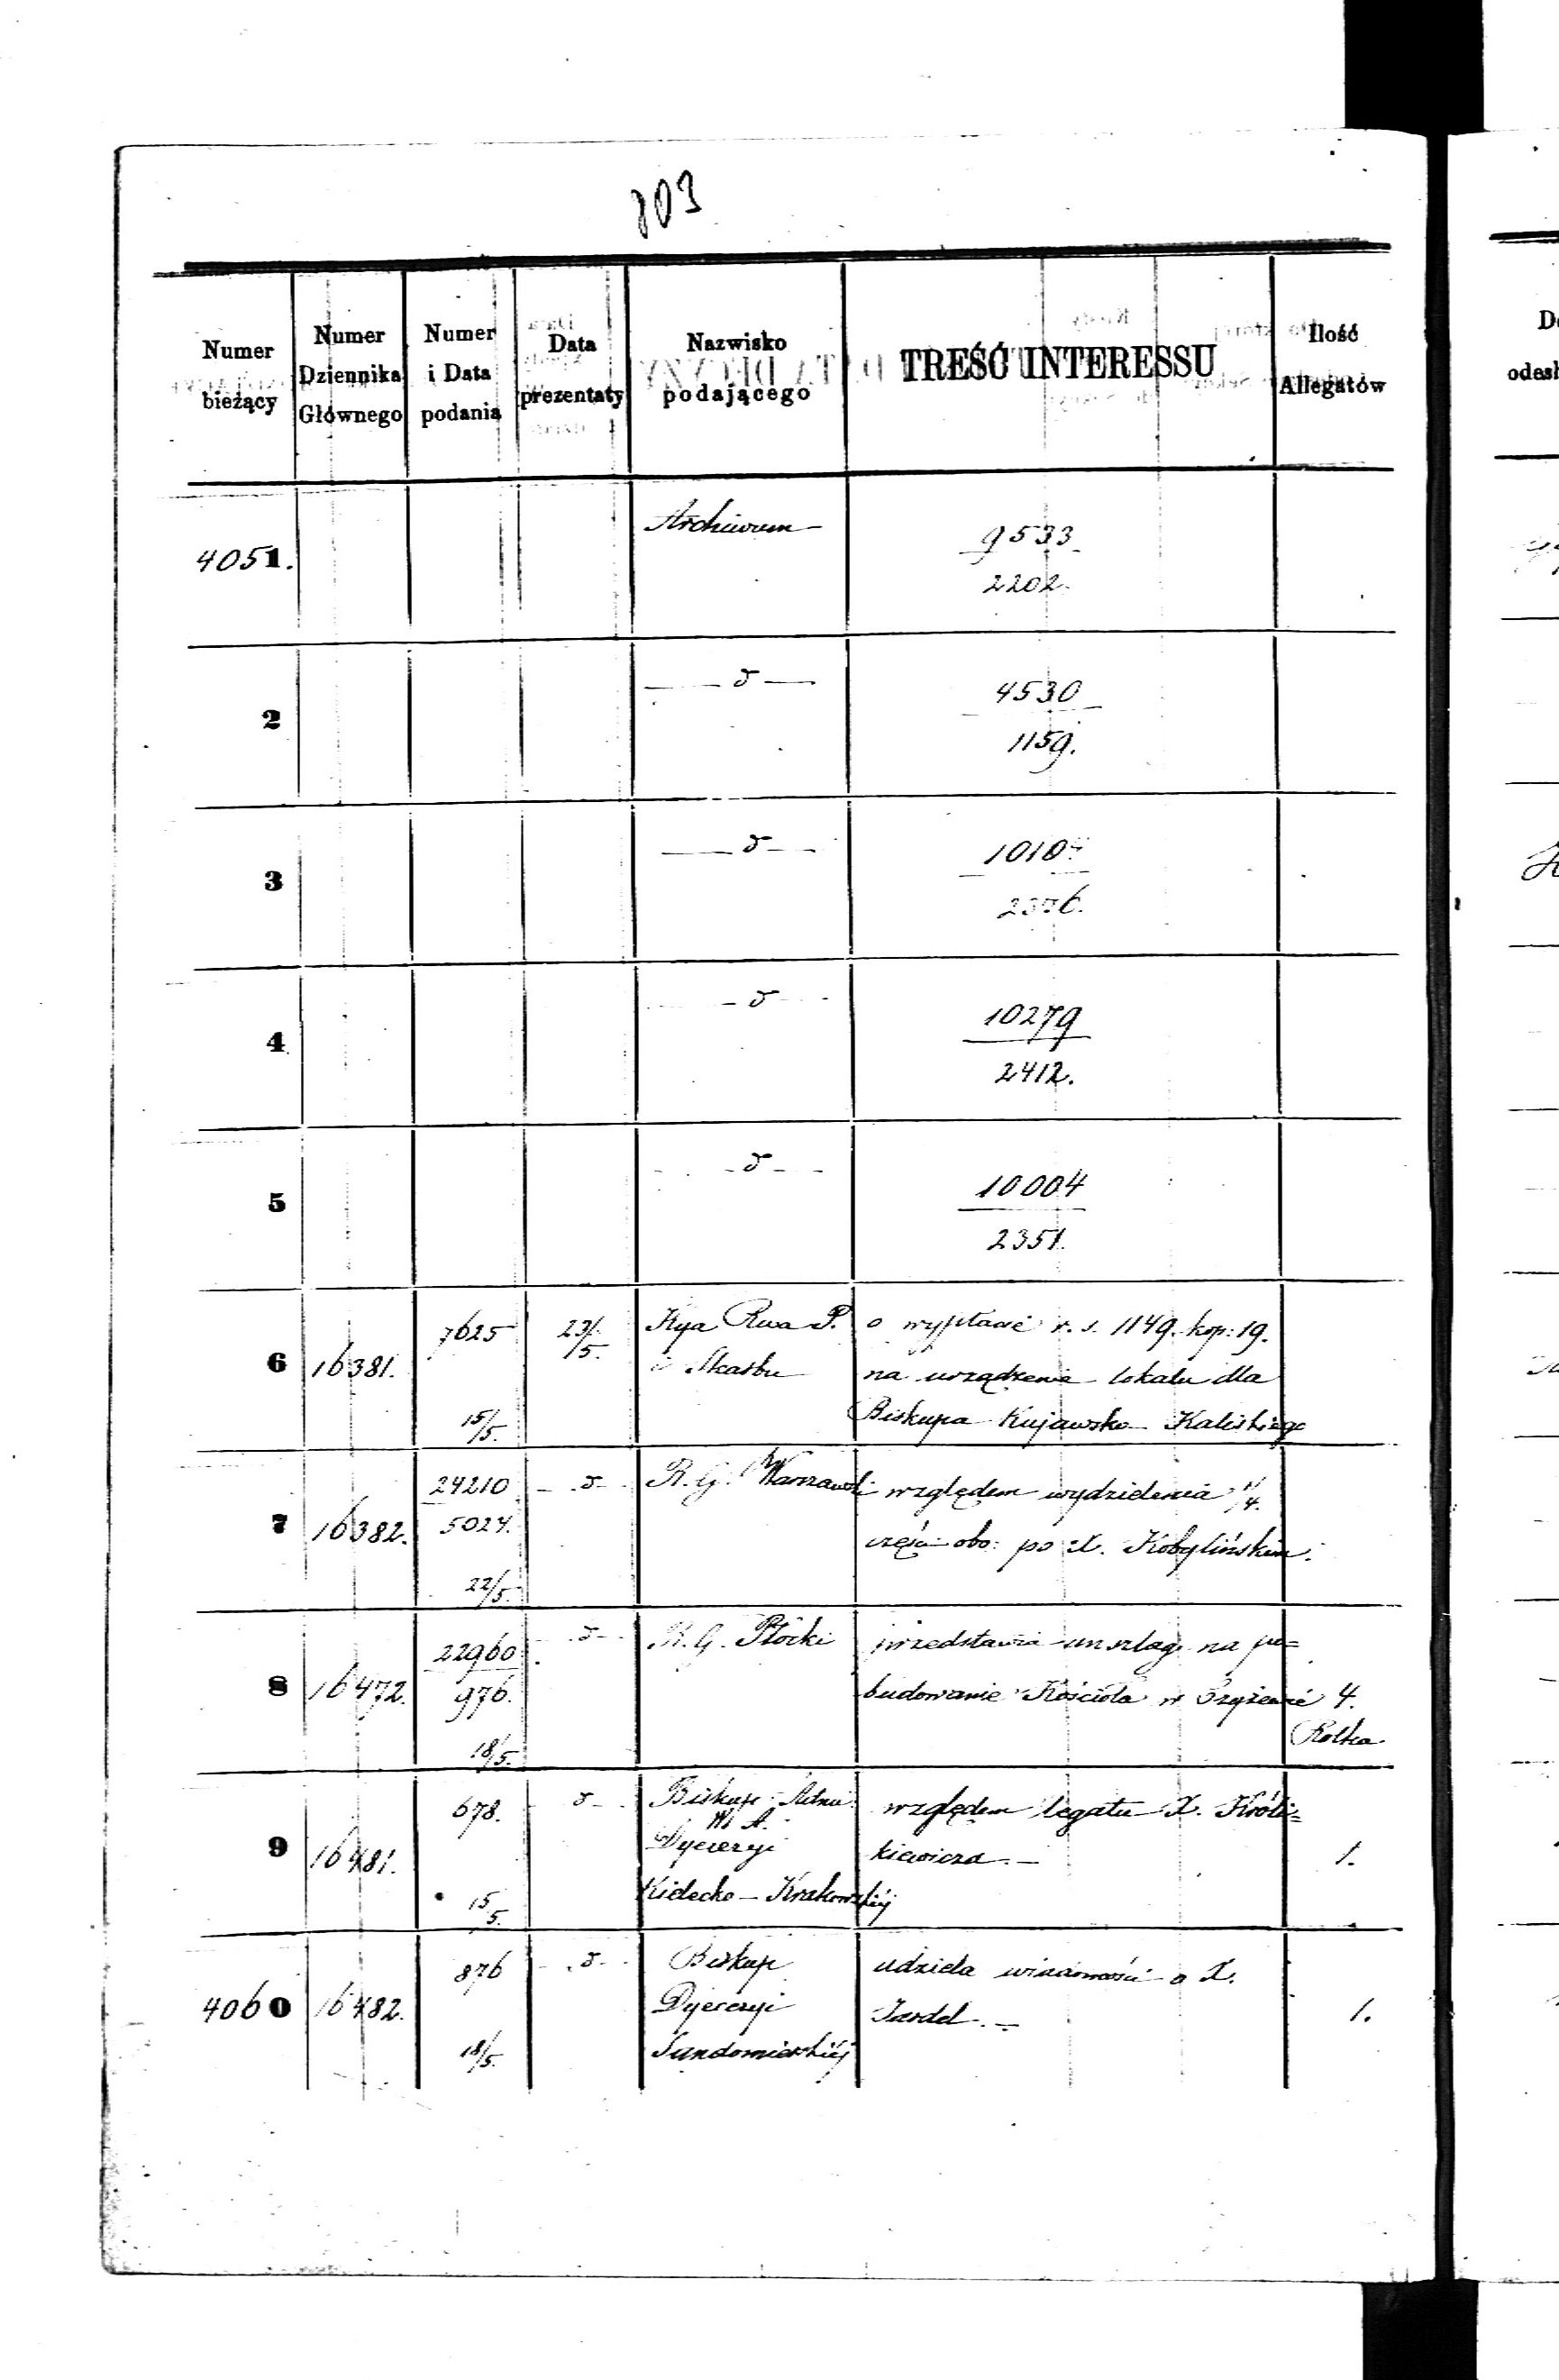 803
Numer bieżący | Numer Dziennika Głównego | Numer i Data podania | Data prezentaty | Nazwisko podającego | TREŚĆ INTERESSU | Ilość Allegatów
4051. Archiwum 9533
2202.
2 — d — 4530
1159.
3 — d —
4 — d — 10279
2412.
5 — d — 10004
2351.
6 16381. 7625 15/5. 23/5. Kya Rwa P. o wypłacie r. s. 1149. kop: 19.
i Skarbu na urządzenie lokalu dla
Biskupa Kujawsko Kaliskiego
7 16382. 24210 5024. 22/5. — d — R. G. Warszawski względem wydzielenia 1/4.
części obo: po X. Kobylińskim.
8 16472. 22960 976. 18/5. — d — R. G. Płocki przedstawia anszlag na po=
budowanie Kościoła w 4.
9 16481. 678. 15/5. — d — Biskup względem legatu X. Króli=
Dyecezyi kiewicza. — 1.
Kielecko — Krakowskiej
4060 16482. 876 18/5. — d — Biskup udziela wiadomości o X.
Dyecezyi Jardel. — 1.
Sandomierskiej